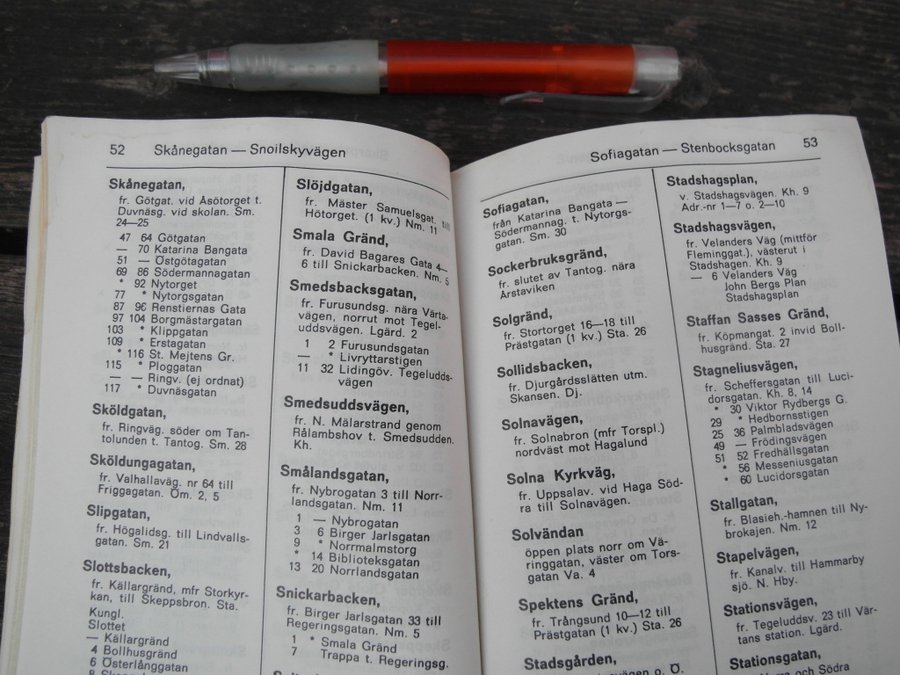 52 Skånegatan — Snoilskyvägen
Skånegatan,
fr. Götgat. vid Åsötorget t.
Duvnäsg. vid skolan. Sm.
24—25
47 64 Götgatan
— 70 Katarina Bangata
51 — Östgötagatan
69 86 Södermannagatan
* 92 Nytorget
77 * Nytorgsgatan
87 96 Renstiernas Gata
97 104 Borgmästargatan
103 * Klippgatan
109 * Erstagatan
* 116 St. Mejtens Gr.
115 * Ploggatan
— — Ringv. (ej ordnat)
117 * Duvnäsgatan
Sköldgatan,
fr. Ringväg. söder om Tan-
tolunden t. Tantog. Sm. 28
Sköldungagatan,
fr. Valhallaväg. nr 64 till
Friggagatan. Öm. 2, 5
Slipgatan,
fr. Högalidsg. till Lindvalls-
gatan. Sm. 21
Slottsbacken,
fr. Källargränd, mfr Storkyr-
kan, till Skeppsbron. Sta.
Kungl.
Slottet
— Källargränd
4 Bollhusgränd
6 Österlånggatan
Slöjdgatan,
fr. Mäster Samuelsgat. till
Hötorget. (1 kv.) Nm. 11
Smala Gränd,
fr. David Bagares Gata 4—
6 till Snickarbacken. Nm. 5
Smedsbacksgatan,
fr. Furusundsg. nära Värta-
vägen, norrut mot Tegel-
uddsvägen. Lgärd. 2
1 2 Furusundsgatan
— * Livryttarstigen
11 32 Lidingöv. Tegeludds-
vägen
Smedsuddsvägen,
fr. N. Mälarstrand genom
Rålambshov t. Smedsudden.
Kh.
Smålandsgatan,
fr. Nybrogatan 3 till Norr-
landsgatan. Nm. 11
1 — Nybrogatan
3 6 Birger Jarlsgatan
9 * Norrmalmstorg
* 14 Biblioteksgatan
13 20 Norrlandsgatan
Snickarbacken,
fr. Birger Jarlsgatan 33 till
Regeringsgatan. Nm. 5
1 * Smala Gränd
7 Trappa t. Regeringsg.
Sofiagatan — Stenbocksgatan 53
Sofiagatan,
från Katarina Bangata —
Södermannag. t. Nytorgs-
gatan. Sm. 30
Sockerbruksgränd,
fr. slutet av Tantog. nära
Årstaviken
Solgränd,
fr. Stortorget 16—18 till
Prästgatan (1 kv.) Sta. 26
Sollidsbacken,
fr. Djurgårdsslätten utm.
Skansen. Dj.
Solnavägen,
fr. Solnabron (mfr Torspl.)
nordväst mot Hagalund
Solna Kyrkväg,
fr. Uppsalav. vid Haga Söd-
ra till Solnavägen.
Solvändan
öppen plats norr om Vä-
ringgatan, väster om Tors-
gatan Va. 4
Spektens Gränd,
fr. Trångsund 10—12 till
Prästgatan (1 kv.) Sta. 26
Stadsgården,
Stadshagsplan,
v. Stadshagsvägen. Kh. 9
Adr.-nr 1—7 o. 2—10
Stadshagsvägen,
fr. Velanders Väg (mittför
Fleminggat.), västerut i
Stadshagen. Kh. 9
— 6 Velanders Väg
John Bergs Plan
Stadshagsplan
Staffan Sasses Gränd,
fr. Köpmangat. 2 invid Boll-
husgränd. Sta. 27
Stagneliusvägen,
fr. Scheffersgatan till Luci-
dorsgatan. Kh. 8, 14
* 30 Viktor Rydbergs G.
29 * Hedbornsstigen
25 36 Palmbladsvägen
49 — Frödingsvägen
51 52 Fredhällsgatan
* 56 Messeniusgatan
* 60 Lucidorsgatan
Stallgatan,
fr. Blasieh.-hamnen till Ny-
brokajen. Nm. 12
Stapelvägen,
fr. Kanalv. till Hammarby
sjö. N. Hby.
Stationsvägen,
fr. Tegeluddsv. 23 till Vär-
tans station. Lgärd.
Stationsgatan,